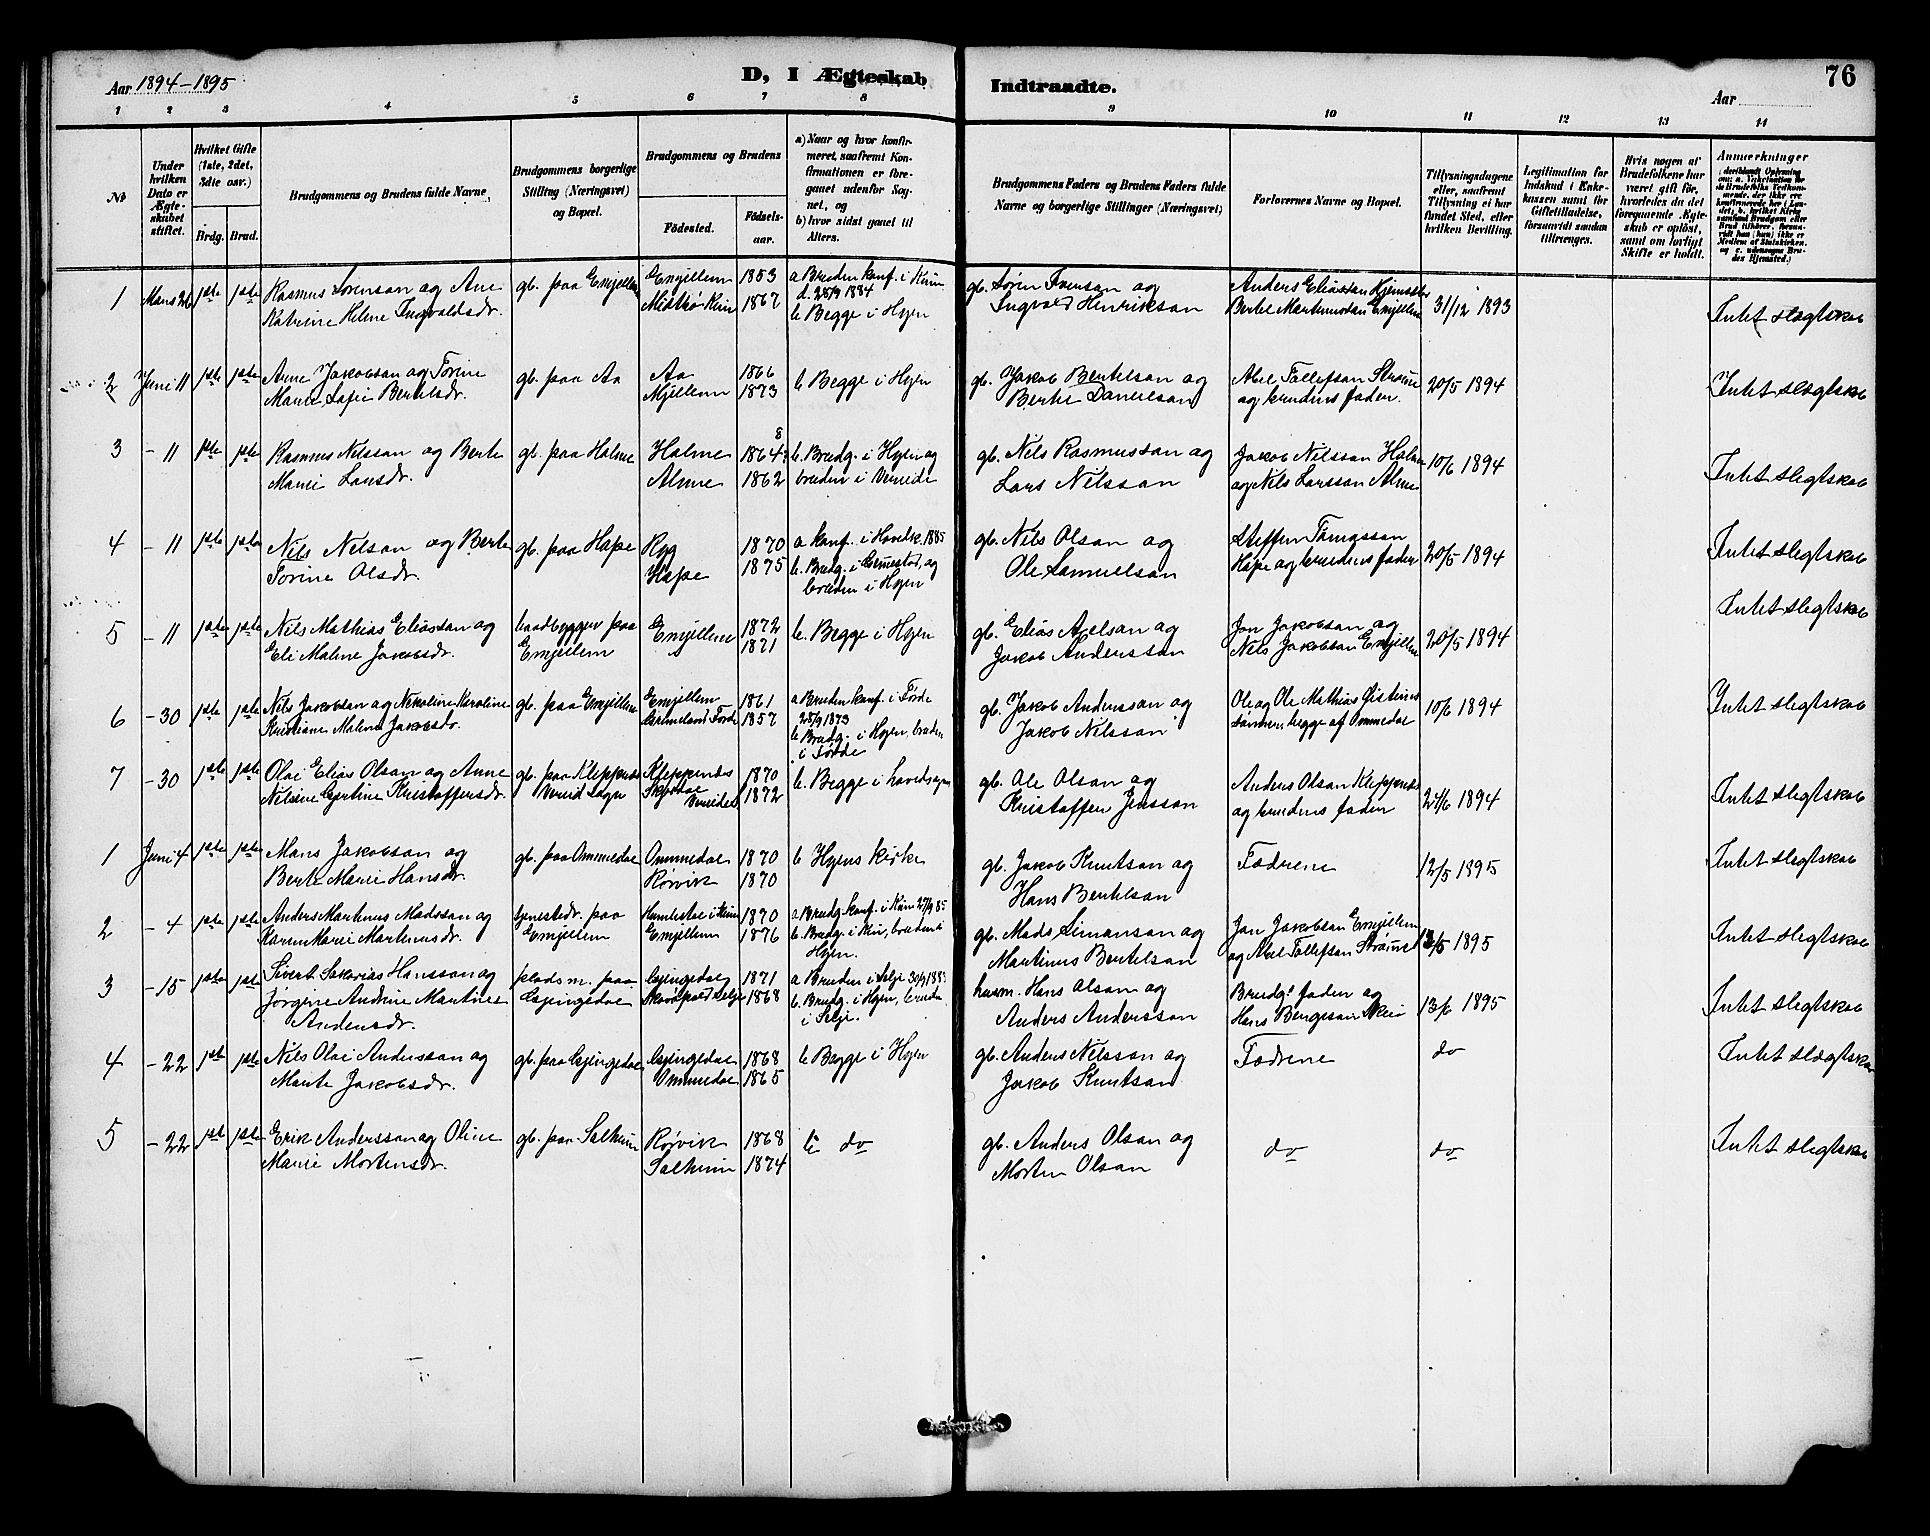 Aar 1894-1895
D, I Ægteskab
Indtraadte.
Aar
76
1 2 3 4 5 6 7 8 9 10 11 12 13 14
No
Under hvilken Dato er Ægteskabet stiftet.
Hvilket Gifte (1ste, 2det, 3die osv.)
Brdg. Brud.
Brudgommens og Brudens fulde Navne.
Brudgommens borgerlige Stilling (Næringsvei) og Bopæl.
Brudgommens og Brudens
Fødested.
Fødselsaar.
a) Naar og hvor konfirmeret, saafremt Konfirmationen er foregaaet udenfor Sognet, og
b) hvor sidst gaaet til Alters.
Brudgommens Faders og Brudens Faders fulde Navne og borgerlige Stillinger (Næringsvei)
Forlovernes Navne og Bopæl.
Tillysningsdagene eller, saafremt Tillysning ei har fundet Sted, efter hvilken Bevilling.
Legitimation for Indskud i Enkekassen samt for Giftetilladelse, forsaavidt saadan tiltrænges.
Hvis nogen af Brudefolkene har været gift før, hvorledes da det foregaaende Ægteskab er opløst, samt om lovligt Skifte er holdt.
Anmærkninger
1 Mars 26 1ste 1ste Rasmus Sørenson og Ane
Katrine Helene Ingvaldsdr.
gb. paa Emjellem
Emjellem 1853
Kinn 1867
a Bruden konf. i Kinn
d. 28/9 1884
b Begge i Hyen
gb. Søren Ivenson og
Ingvald Henrikson
Anders Eliassan
Bertel Martinussan Emjellem
31/12 1893
Intet slegtskab
2 Juni 11 1ste 1ste Arne Jakobsan og Torine
Marie Sofie Bertelsdr.
gb. paa Aa
Aa 1866
Mjellem 1873
b Begge i Hyen
gb. Jakob Bertelsan og
Bertel Danielsan
Abel Tollefsan Strøme
og brudens fader.
20/5 1894
Intet slægtskab
3 - 11 1ste 1ste Rasmus Nilssan og Berte
Marie Larsdr.
gb. paa Holme
Holme 1864
8
Alme 1862
b. Brudg. i Hyen og
bruden i Vereide
gb. Nils Rasmussan og
Lars Nilssan
Jakob Nilssan Holme
og Nils Larssan Alme
10/6 1894
Intet slegtskab
4 - 11 1ste 1ste Nils Nelsan og Berte
Torine Olsdr.
gb. paa Hope
Ryg 1870
Hope 1875
a konf. i Hovedk. 1885
b. Brudg. i Gimestad, og
bruden i Hyen
gb. Nils Olsan og
Ole Samuelsan
Steffen Tomassan
Hope og brudens fader
20/5 1894
Intet slegtskab
5 - 11 1ste 1ste Nils Mathias Eliassan og
Eli Malene Jakobsdr.
baadbygger paa
Emjellem
Emjellem 1872
1871
b. Begge i Hyen
gb. Elias Aelsan og
Jakob Anderssan
Jon Jakobsan og
Nils Jakobsan Emjellem
20/5 1894
Intet slegtskab
6 - 30 1ste 1ste Nils Jakobsan og Nikoline Karoline
Kristiane Malene Jakobsdr.
gb. paa Emjellem
Emjellem 1861
Førde 1857
a Bruden konf. i Førde
28/9 1873
b Brudg. i Hyen, bruden
i Førde
gb. Jakob Anderssan og
Jakob Nilssan
Ole og Ole Mathias
begge af Ommedal
10/6 1894
Intet slegtskab
7 - 30 1ste 1ste Olai Elias Olsan og Anne
Nelsine Gjertine Kristoffersdr.
gb. paa Kleppenes
Vereid Sogn
Kleppenes 1870
Vereide 1872
b. Begge i hovedsogn
gb. Ole Olsan og
Kristoffer Jenssan
Anders Olsan Kleppenes
og brudens fader
24/6 1894
Intet slegtskab
1 Juni 4 1ste 1ste Mons Jakobsan og
Berte Marie Hansdr.
gb. paa Ommedal
Ommedal 1870
Rørvik 1870
b Hyens kirke
gb. Jakob Knutsan og
Hans Bertelsan
Fædrene
12/5 1895
Intet slegtskab
2 - 4 1ste 1ste Anders Martinus Madssan og
Karen Marie Martinusdr.
tjenestedr. paa
Emjellem
i Kinn 1870
Emjellem 1876
a Brudg. konf. i Kinn 27/9 85
b. Brudg. i Kin, bruden i
Hyen.
gb. Mads Simonsan og
Martinus Bertelsan
Jon Jakobsan Emjellem
og Abel Tollefsan Strøme
/5 1895
Intet slegtskab
3 - 15 1ste 1ste Sivert Sakarias Hanssan og
Jørgine Andrine Martine
Andersdr.
pladsm. paa
Gjengedal
Gjengedal 1871
Selje 1868
a Bruden i Selje 30/9 1883
b. Brudg. i Hyen, bruden
i Selje.
husm. Hans Olsan og
Anders Anderssan
Brudgs fader og
Hans Bengtsan Skei
13/6 1895
Intet slegtskab
4 - 22 1ste 1ste Nils Olai Anderssan og
Marte Jakobsdr.
gb. paa Gjengedal
Gjengedal 1868
Ommedal 1865
b Begge i Hyen
gb. Anders Nilssan og
Jakob Knutsan
Fædrene
do
Intet slægtskab
5 - 22 1ste 1ste Erik Anderssan og Oline
Marie Mortensdr.
gb. paa Solheim
Rørvik 1868
Solheim 1874
b do
gb. Anders Olsan og
Morten Olsan
do
do
Intet slegtskab